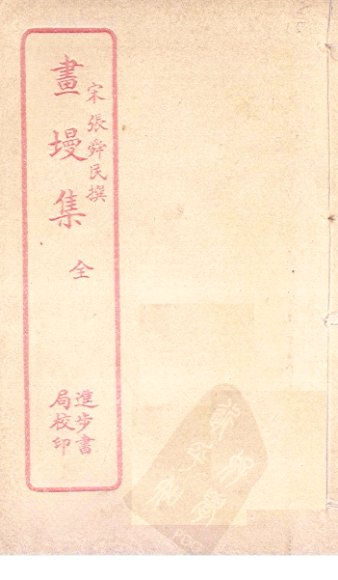 宋張舜民撰
畫墁集 全
進步書
局校印